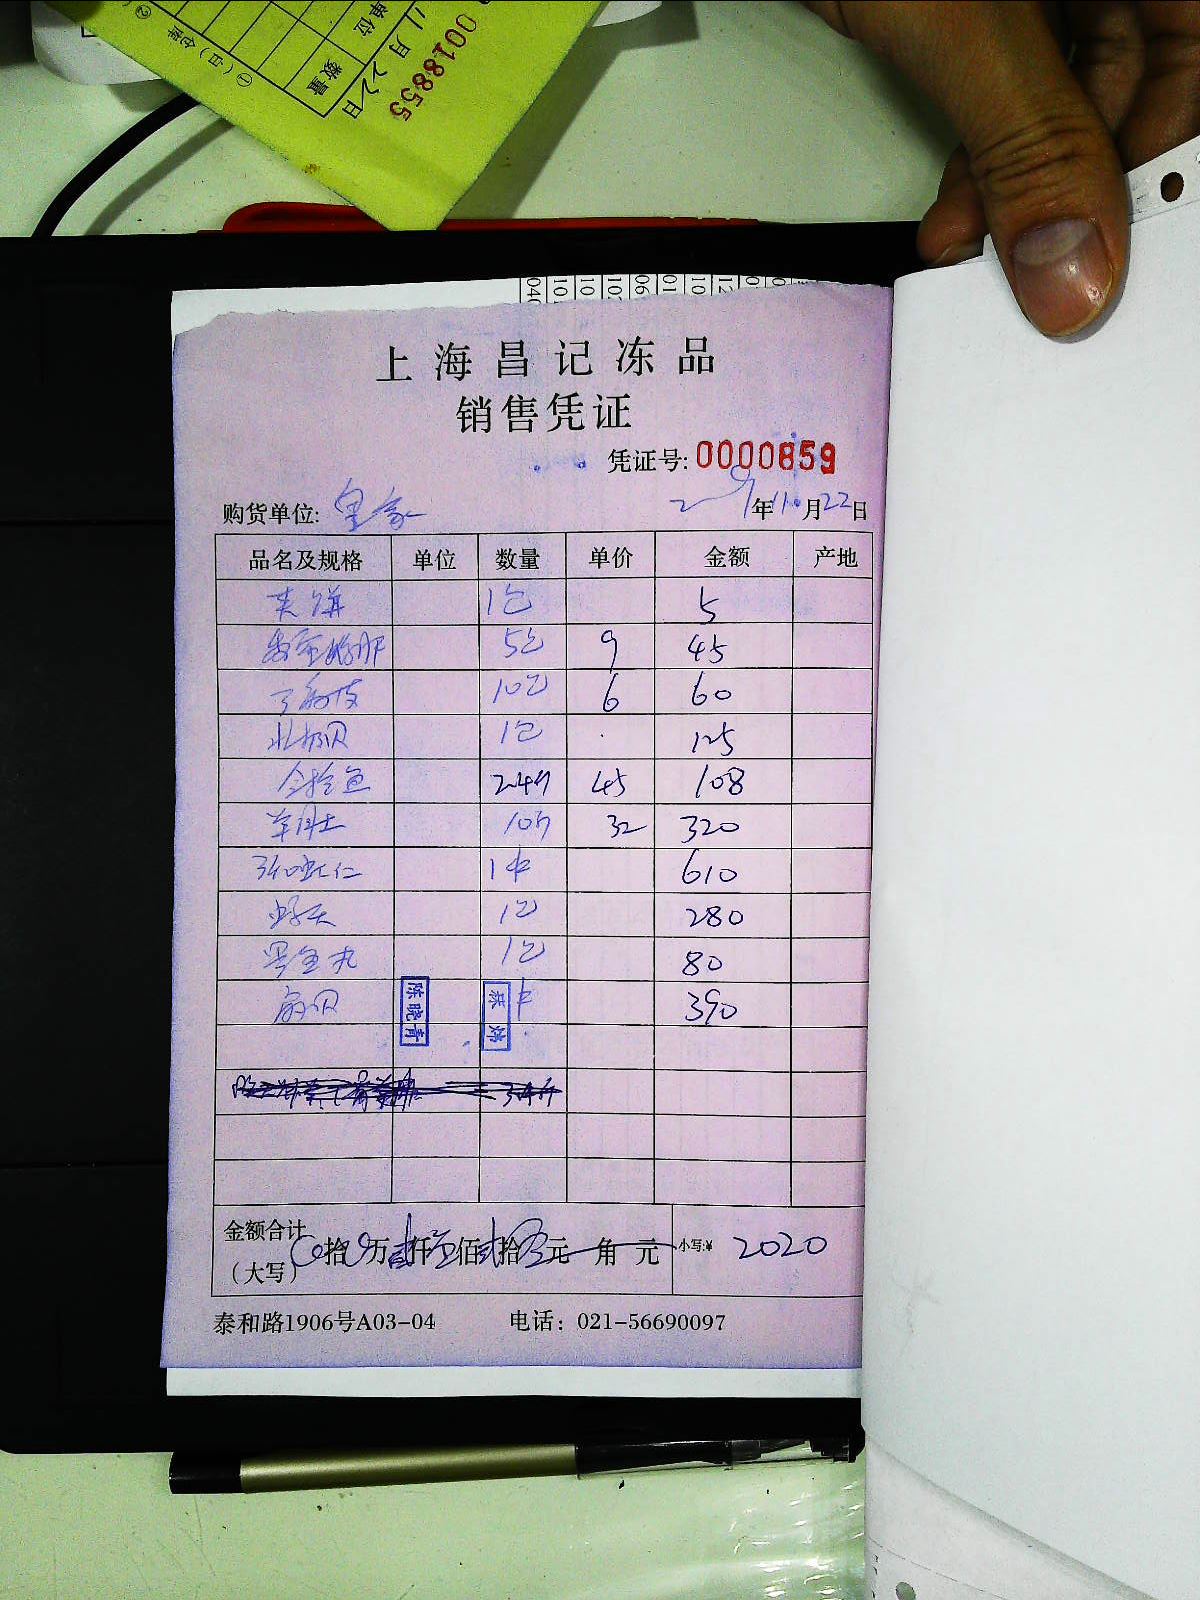 0018855
11月22日
单位
数量
①(白)仓库
②
上海昌记冻品
销售凭证
凭证号: 0000859
购货单位: 皇家
2019年11月22日
品名及规格 单位 数量 单价 金额 产地
夹饼 1包 5
5包 9 45
10包 6 60
北极贝 1包 125
2.4斤 45 108
10斤 32 320
虾仁 1件 610
1包 280
1包 80
扇贝 件 390
陈晓青
金额合计
(大写) 0拾0万贰仟零佰贰拾零元 角 元 小写:¥ 2020
泰和路1906号A03-04 电话: 021-56690097